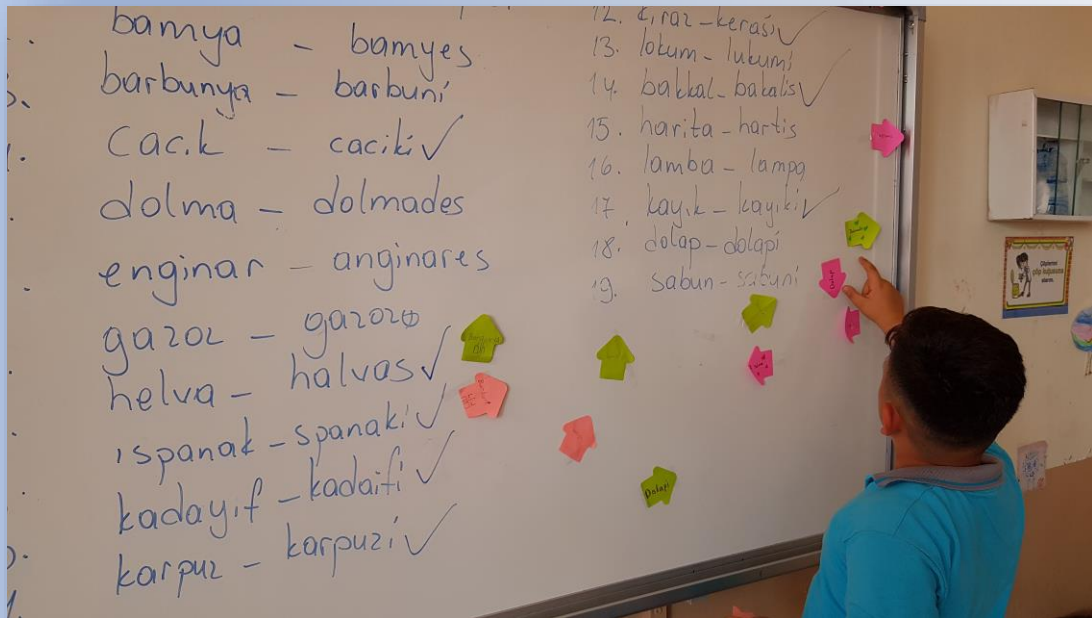 bamya - bamyes
barbunya - barbuni
cacık - caciki ✓
dolma - dolmades
enginar - anginares
gazoz - gazoza
helva - halvas ✓
ıspanak - spanaki ✓
kadayıf - kadaifi ✓
karpuz - karpuzi ✓
12. kiraz - keraşi ✓
13. lokum - lukumi
14. bakkal - bakalis ✓
15. harita - hartis
16. lamba - lampa
17. kayık - kayıki ✓
18. dolap - dolapi
19. sabun - sabuni
Dolapi